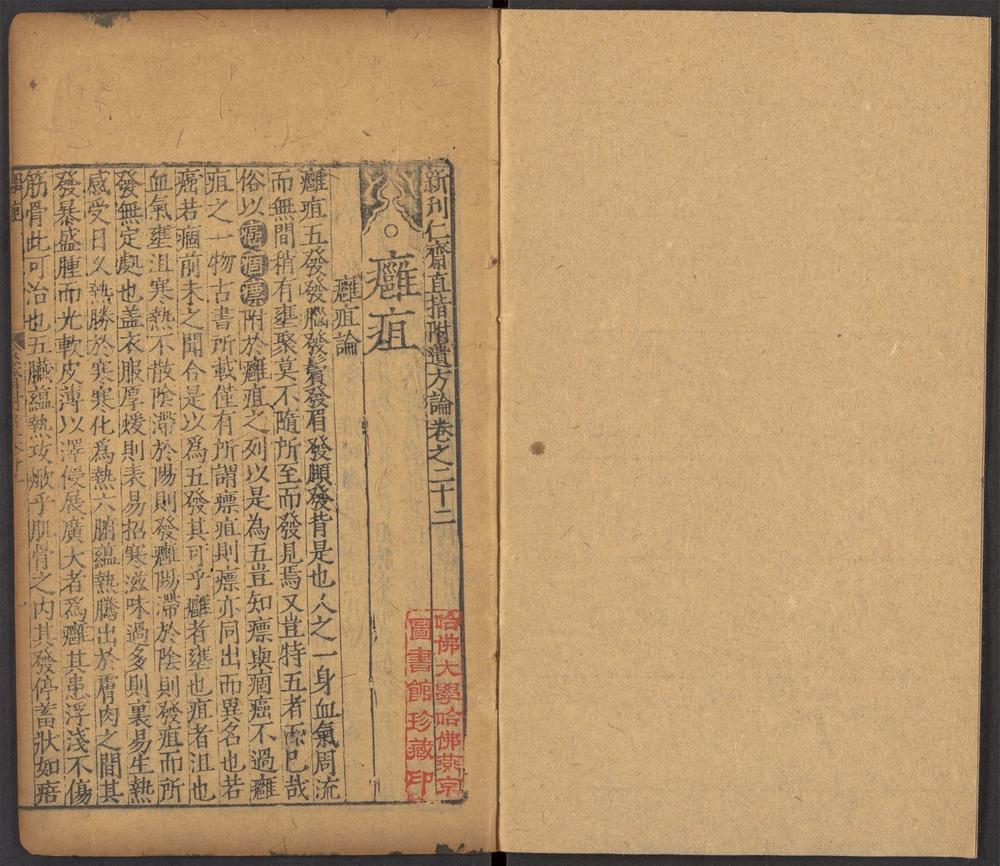 新刋仁齋直指附遺方論卷之二十二
癰疽
癰疽論
癰疽五發發腦發鬢發眉發頤發背是也人之一身血氣周流
而無間稍有壅聚莫不隨所至而發見焉又豈特五者而已哉
俗以痣瘤瘭附於癰疽之列以是為五豈知瘭與痼癌不過癰
疽之一物古書所載僅有所謂瘭疽則瘭亦同出而異名也若
癌若痼前未之聞合是以爲五發其可乎癰者壅也疽者沮也
血氣壅沮寒熱不散陰滯於陽則發癰陽滯於陰則發疽而所
發無定處也盖衣服厚煖則表易招寒滋味過多則裏易生熱
感受日久熱勝於寒寒化爲熱六腑蘊熱騰出於膚肉之間其
發暴盛腫而光軟皮薄以澤侵展廣大者爲癰其患浮淺不傷
筋骨此可治也五臟蘊熱攻焮乎肌骨之内其發停蓄狀如痦
哈佛大學哈佛燕京
圖書館珍藏印